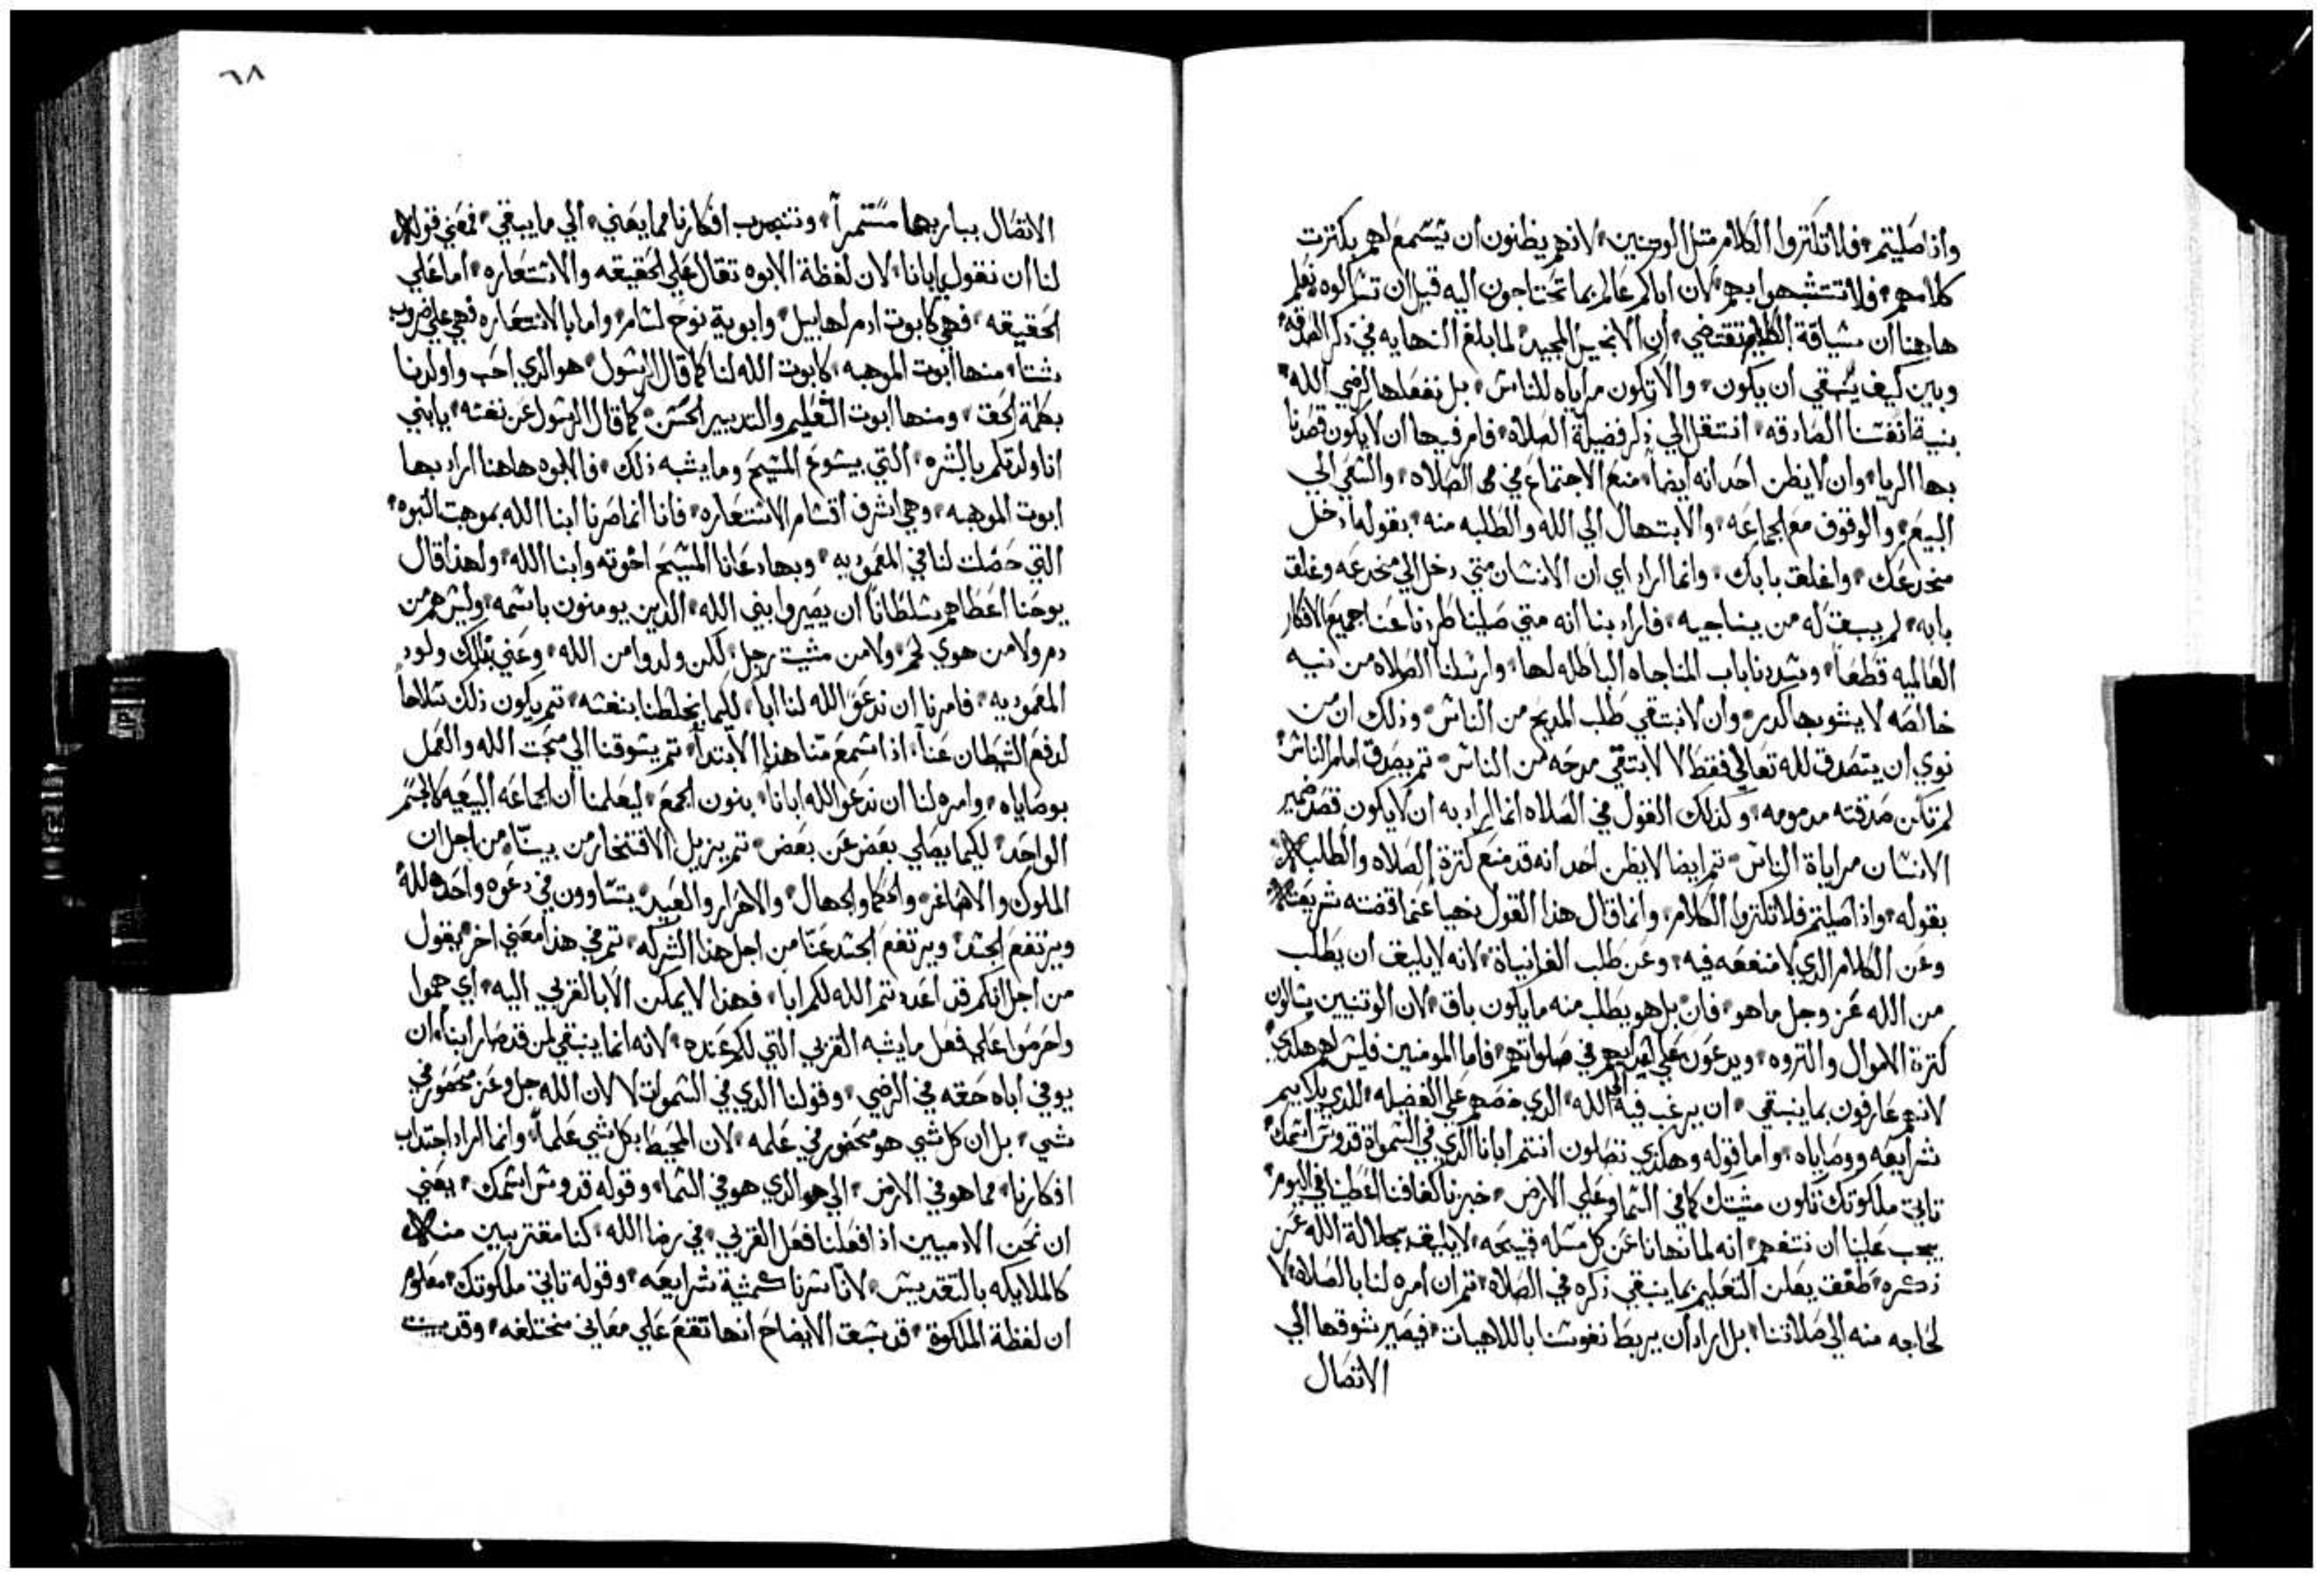 واذا صليتم فلا تكتروا الكلام متل الوتنيين لانهم يظنون ان يستمع لهم بكترت
كلامهم فلا تتشبهوا بهم لان اباكم عالم بما تحتاجون اليه قبل ان تسالوه نعلم
هاهنا ان سياقة الكلام تقتضي ان الانجيل المجيد لما بلغ النهايه في ذكر الصدقه
وبين كيف ينبقي ان يكون والا تكون مراياه للناس بل نفعلها لرضي الله
بنية انفسنا الصادقه انتقل الي ذكر فضيلة الصلاه فامر فيها ان لا يكون قصدنا
بها الريا وان لا يظن احد انه ايضا منع الاجتماع في الصلاه والسعي الي
البيع والوقوف مع الجماعه والابتهال الي الله والطلبه منه بقوله ادخل
مخدعك واغلق بابك وانما اراد اي ان الانسان متي دخل الي مخدعه وغلق
بابه لم يبق له من يناجيه فاراد بنا انه متي صلينا طردنا عنا جميع الافكار
العالميه قطعا وسددنا باب المناجاه الباطله لها وارسلنا الصلاه من نيه
خالصه لا يشوبها كدر وان لا نبتقي طلب المديح من الناس وذلك ان من
نوي ان يتصدق لله تعالي فقط لا لابتقي مدحه من الناس تم يصدق امام الناس
لم تكن صدقته مدمومه وكذلك القول في الصلاه انما اراد به ان لا يكون قصد ضمير
الانسان مراياة الناس تم ايضا لا يظن احد انه قد منع كترة الصلاه والطلبه
بقوله واذا صليتم فلا تكتروا الكلام وانما قال هذا القول نهيا عنما اقضته شريعته
وعن الكلام الدي لا منفعه فيه وعن طلب الفانياة لانه لا يليق ان يطلب
من الله عز وجل ما هو فان بل هو يطلب منه ما يكون باق لان الوتنيين يسالون
كترة الاموال والتروه ويدعون علي اعدايهم في صلواتهم فاما المومنين فليس هم هكدي
لانهم عارفون بما ينبقي ان يرغب فيه الي الله الدي خصهم علي الفضيله للدي يلايم
شرايعه ووصاياه واما قوله وهكدي تصلون انتم ابانا الدي في السمواة قدوس اسمك
تاتي ملكوتك تكون مشيتك كما في السما وعلي الارض خبزنا كفافنا اعطينا في اليوم
يجب علينا ان نتفهم انه لما نهانا عن كل مسله قبيحه لا يليق بجلالة الله عز
ذكره طفق يعلن التعليم بما ينبقي ذكره في الصلاه تم ان امره لنا بالصلاه لا
لحاجه منه الي صلاتنا بل اراد ان يربط نفوسنا باللاهيات فيصير شوقها الي
الاتصال
٦٨
الاتصال بباريها مستمرا وننجدب افكارنا مما يفني الي ما يبقي فمعني قوله
لنا ان نقول يابانا لان لفظة الابوه تقال علي الحقيقه والاستعاره اما علي
الحقيقه فهي كابوت ادم لهابيل وابوية نوح لسام واما بالاستعاره فهي علي ضروب
شتا منها ابوت الموهبه كابوت الله لنا كما قال الرسول هو الدي احب واولدنا
بكلمة الحق ومنها ابوت التعليم والتدبير الحسن كما قال الرسول عن نفسه يابني
انا ولدتكم بالبشره التي يسوع المسيح وما يشبه ذلك فالابوه هاهنا اراد بها
ابوت الموهبه وهي اشرف اقسام الاستعاره فانا انما صرنا ابنا الله بموهبت البنوه
التي حصلت لنا في المعموديه وبها دعانا المسيح اخوته وابنا الله ولهذا قال
يوحنا اعطاهم سلطانا ان يصيروا بني الله الدين يومنون باسمه وليس هم من
دم ولا من هوي لحم ولا من مشيت رجل لكن ولدوا من الله وعني بذلك ولود
المعموديه فامرنا ان ندعوا الله لنا ابا لكيما يخلطنا بنفسه تم يكون ذلك سلاحا
لدفع الشيطان عنا اذا سمع منا هذا الابتدا تم يشوقنا الي محبت الله والعمل
بوصاياه وامره لنا ان ندعوا الله ابانا بنون الجمع ليعلمنا ان الجماعه البيعيه كالجسم
الواحد لكيما يصلي بعض عن بعض تم يزيل الافتخار من بيننا من اجل ان
الملوك والاصاغر والحكما والجهال والاحرار والعبيد يتساوون في دعوه واحده لله
ويرتفع الحسد عنا من اجل هذا الشركه تم في هذا معني اخر بقول
من اجل انكم قد اعددتم الله لكم ابا فهذا لا يمكن الا بالقربي اليه اي هموا
واحرصوا علي فعل ما يشبه القربي التي لكم عنده لانه انما ينبقي لمن قد صار ابنا ان
يوفي اباه حقه في الرضي وقولنا الدي في السموات لا لان الله جل وعز محصور في
شي بل ان كل شي هو محصور في علمه لان المحيط بكل شي علما وانما اراد اجتداب
افكارنا مما هو في الارض الي هو الدي هو في السما وقوله قدوس اسمك يعني
ان نحن الادميين اذا فعلنا فعل القربي في رضا الله كنا مقتربين منه
كالملايكه بالتقديس لانا سرنا كمشية شرايعه وقوله تاتي ملكوتك معلوم
ان لفظة الملكوة قد سبق الايضاح انها تقع علي معاني مختلفه وقد بينت